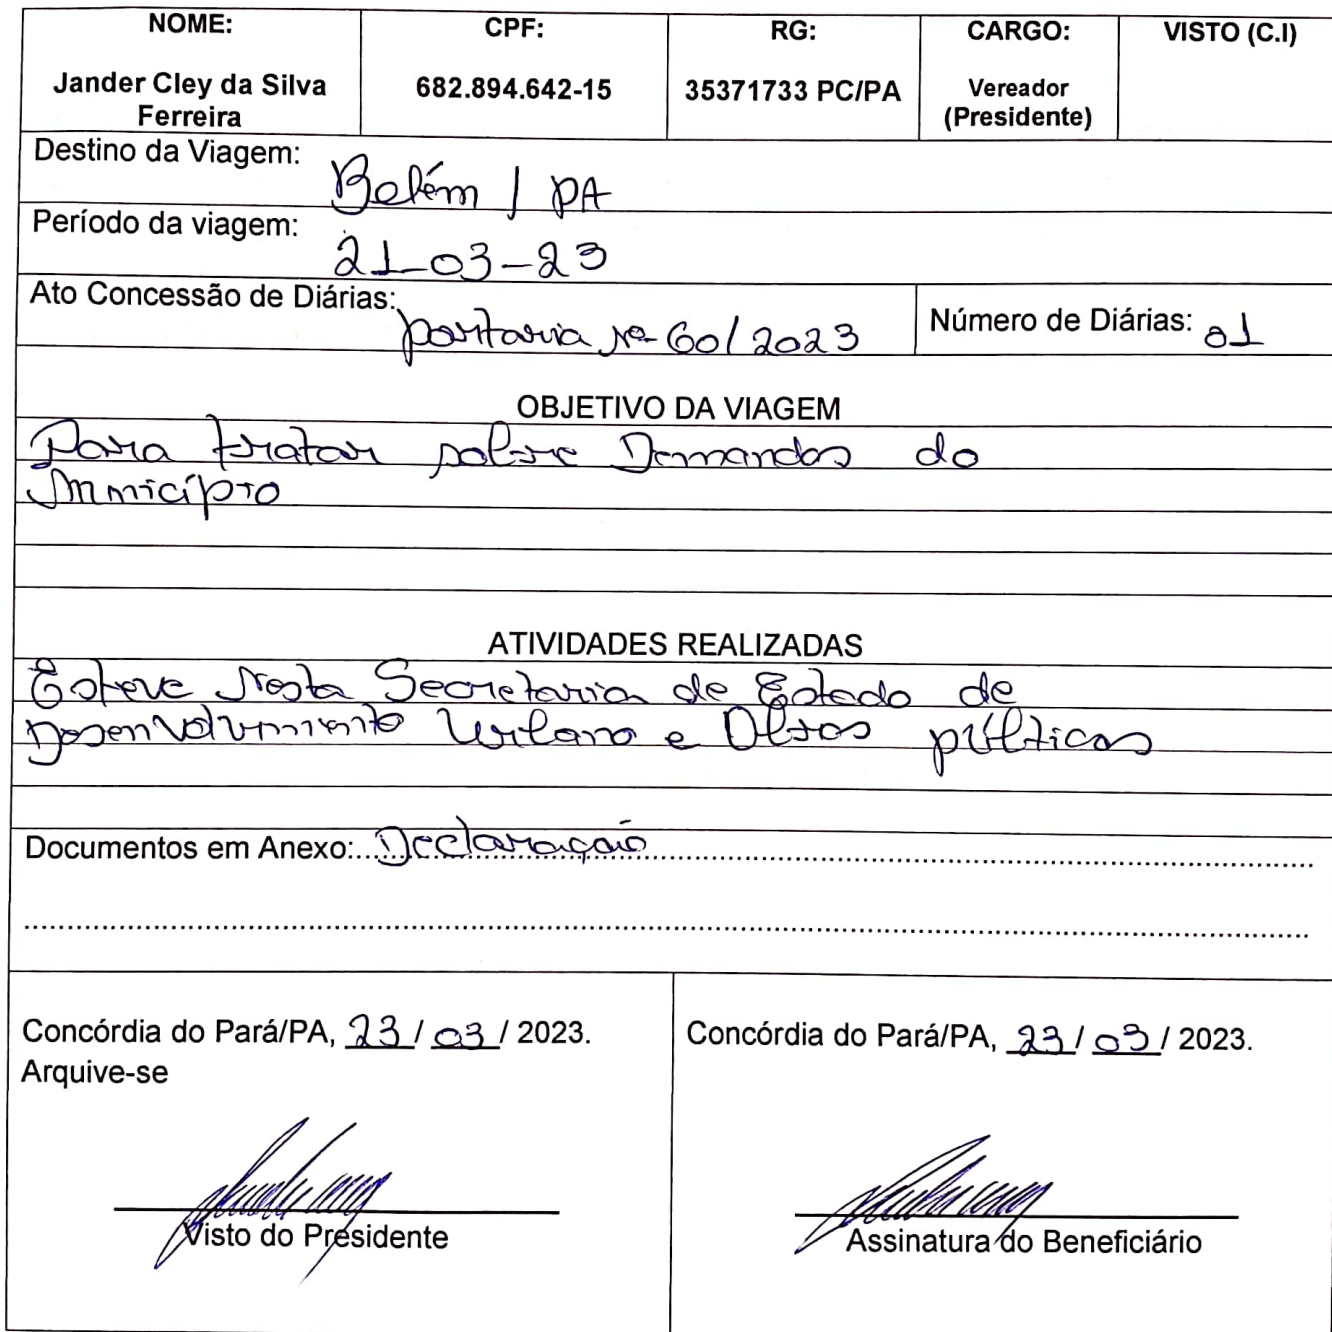 NOME: CPF: RG: CARGO: VISTO (C.I)
Jander Cley da Silva Ferreira 682.894.642-15 35371733 PC/PA Vereador (Presidente)
Destino da Viagem: Belém / PA
Período da viagem: 21-03-23
Ato Concessão de Diárias: portaria nº 60/2023 Número de Diárias: 01
OBJETIVO DA VIAGEM
Para tratar sobre Demandas do
Município
ATIVIDADES REALIZADAS
Esteve Nesta Secretaria de Estado de
Desenvolvimento Urbano e Obras públicas
Documentos em Anexo: Declaração
Concórdia do Pará/PA, 23 / 03 / 2023.
Arquive-se
Visto do Presidente
Concórdia do Pará/PA, 23 / 03 / 2023.
Assinatura do Beneficiário